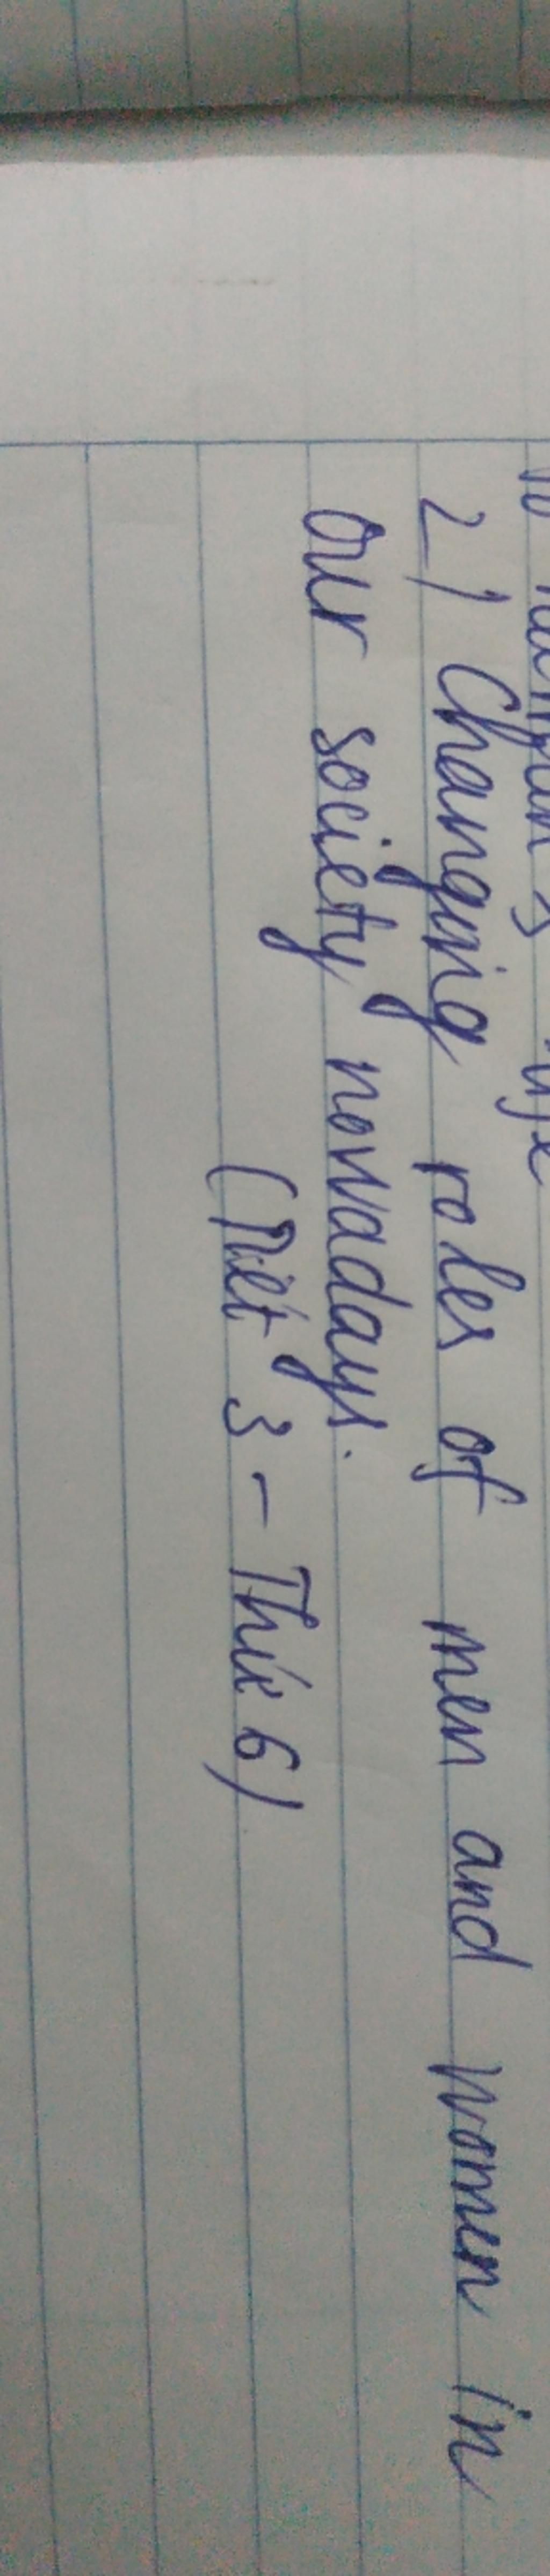 2) Changing roles of men and women in
our society nowadays.
(Tiết 3 - Thứ 6)